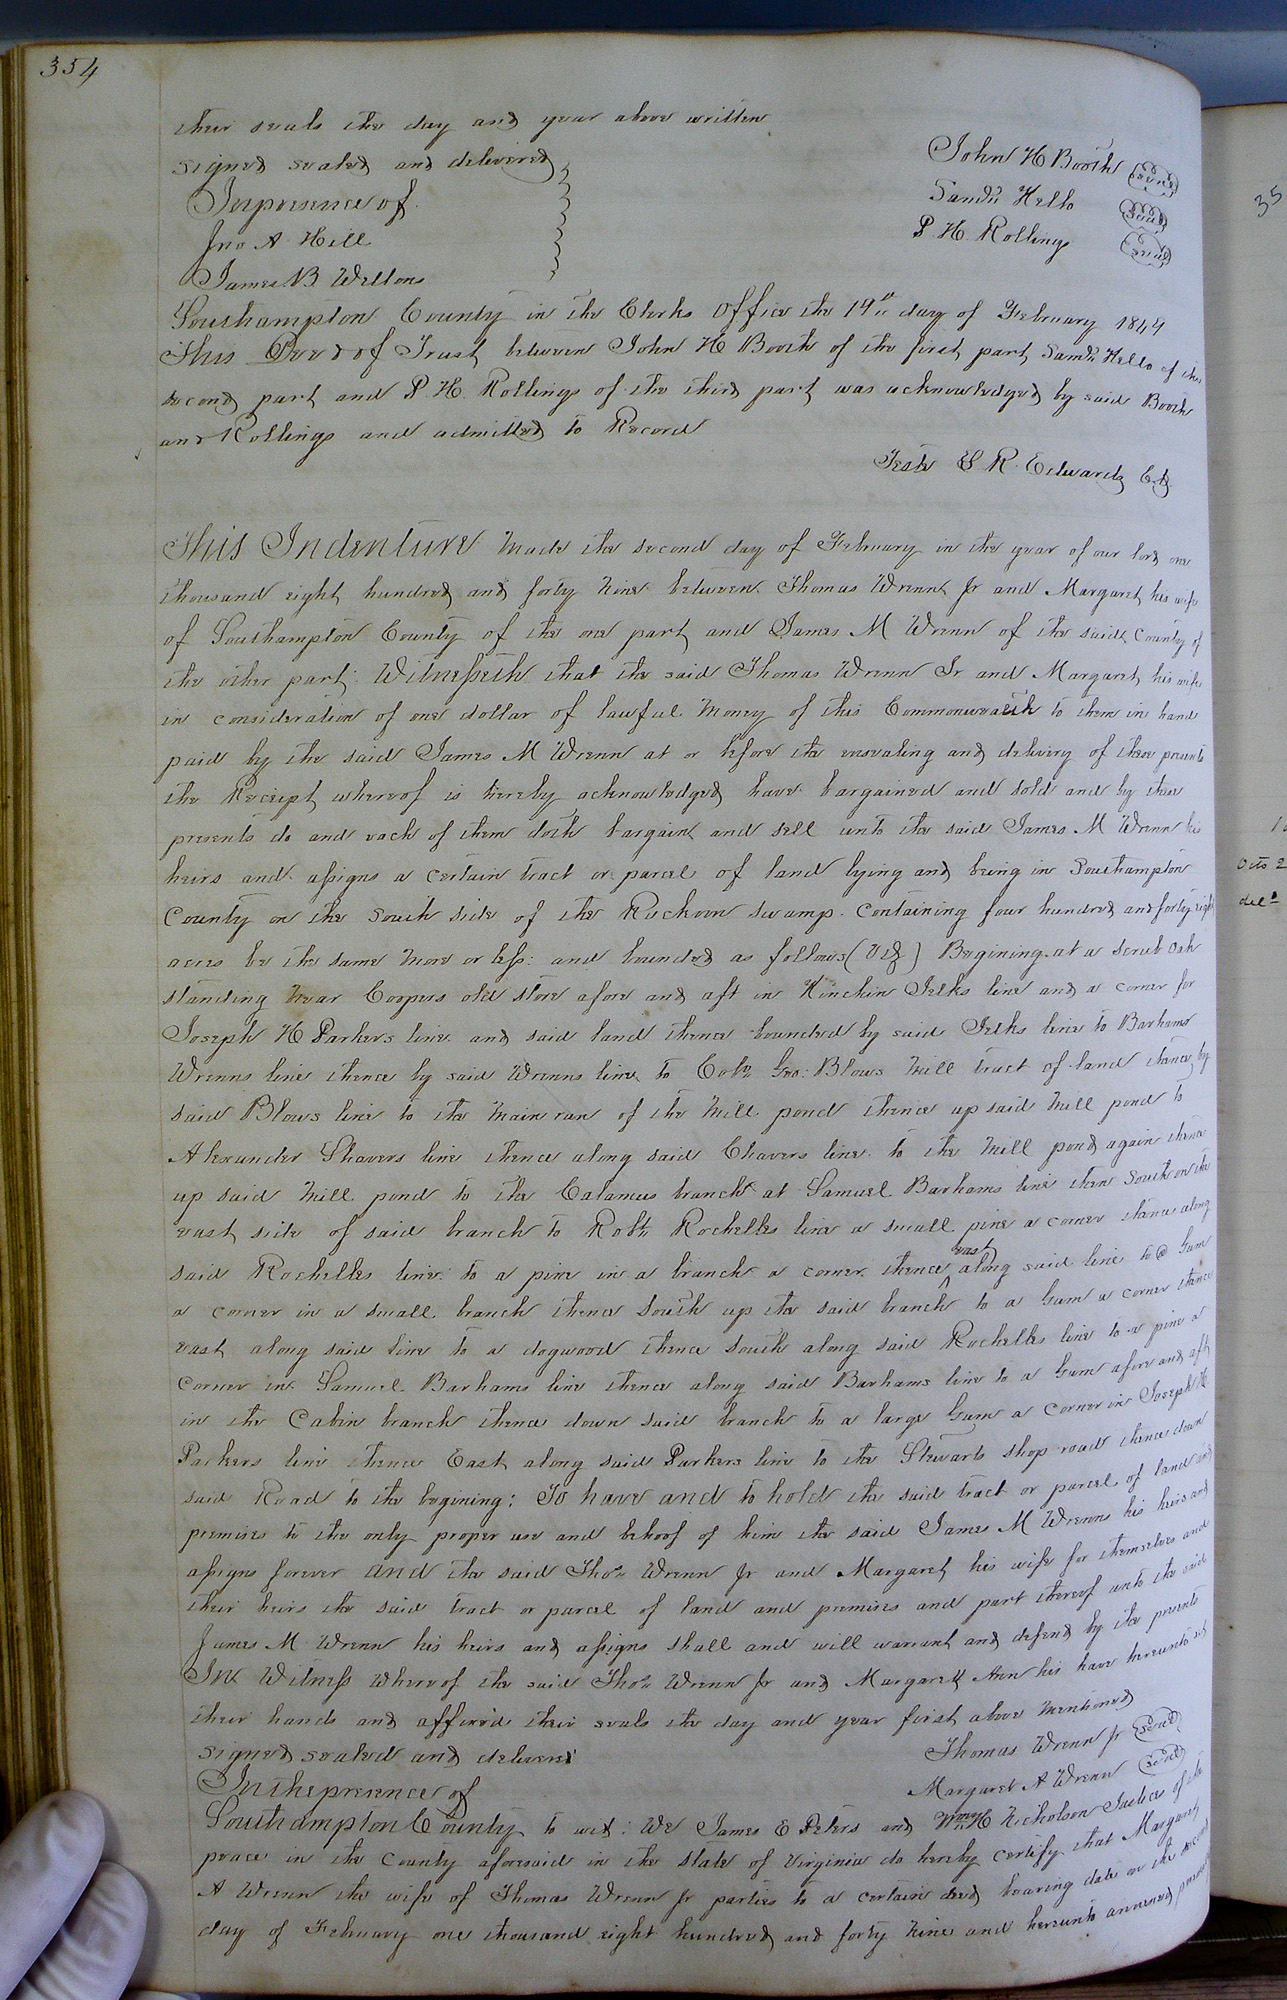 354
their seals the day and year above written
signed sealed and delivered
In presence of
Jno A Hill
James B Wellons
John H Booth Seal
Saml. Kello Seal
P. H. Rollings Seal
Southampton County in the Clerks Office the 19th day of February 1849
This Deed of Trust between John H Booth of the first part Saml. Kello of the
second part and P. H. Rollings of the third part was acknowledged by said Booth
and Rollings and admitted to Record
Teste L R. Edwards C.C.
This Indenture Made the second day of February in the year of our lord one
thousand eight hundred and forty Nine between Thomas Wrenn Jr and Margaret his wife
of Southampton County of the one part and James M Wrenn of the said County of
the other part: Witnesseth that the said Thomas Wrenn Jr and Margaret his wife
in consideration of one dollar of lawful Money of this Commonwealth to them in hand
paid by the said James M Wrenn at or before the ensealing and delivery of these presents
the Receipt whereof is hereby acknowledged have bargained and sold and by these
presents do and each of them doth bargain and sell unto the said James M Wrenn his
heirs and assigns a certain tract or parcel of land lying and being in Southampton
County on the South side of the Rackoon swamp. Containing four hundred and forty eight
acres be the same more or less: and bounded as follows (Viz) Begining at a scrub Oak
standing Near Coopers old store afore and aft in Hinchin Jelks line and a corner for
Joseph H Parkers line and said land thence bounded by said Jelks line to Barham
Wrenns line thence by said Wrenns line to Coln. Geo: Blows Mill tract of land thence by
said Blows line to the Main run of the Mill pond thence up said Mill pond to
Alexander Chavers line thence along said Chavers line to the Mill pond again thence
up said Mill pond to the Calamus branch at Samuel Barhams line then South on the
east side of said branch to Robt. Rochelles line a small pine a corner thence along
said Rochelles line to a pine in a branch a corner thence east along said line to a Gum
a corner in a small branch thence South up the said branch to a Gum a corner thence
east along said line to a dogwood thence south along said Rochelles line to a pine a
corner in Samuel Barhams line thence along said Barhams line to a Gum afore and aft
in the Cabin branch thence down said branch to a large Gum a Corner in Joseph H
Parkers line thence East along said Parkers line to the Stewarts shop road thence down
said Road to the begining: To have and to hold the said tract or parcel of land and
premises to the only proper use and behoof of him the said James M Wrenns his heirs and
assigns forever and the said Thos. Wrenn Jr and Margaret his wife for themselves and
their heirs the said tract or parcel of land and premises and part thereof unto the said
James M Wrenn his heirs and assigns shall and will warrant and defend by the presents
In Witness Whereof the said Thos. Wrenn Jr and Margaret Ann his have hereunto set
their hands and affixed their seals the day and year first above Mentioned
signed sealed and delivered
In the presence of
Thomas Wrenn Jr Seal
Margaret A Wrenn Seal
Southampton County to wit: We James E Peters and H Nicholson Justices of the
peace in the County aforesaid in the state of Virginia do hereby certify that Margaret
A Wrenn the wife of Thomas Wrenn Jr parties to a certain deed bearing date on the second
day of February one thousand eight hundred and forty Nine and hereunto annexed
35
Octo 2
deld